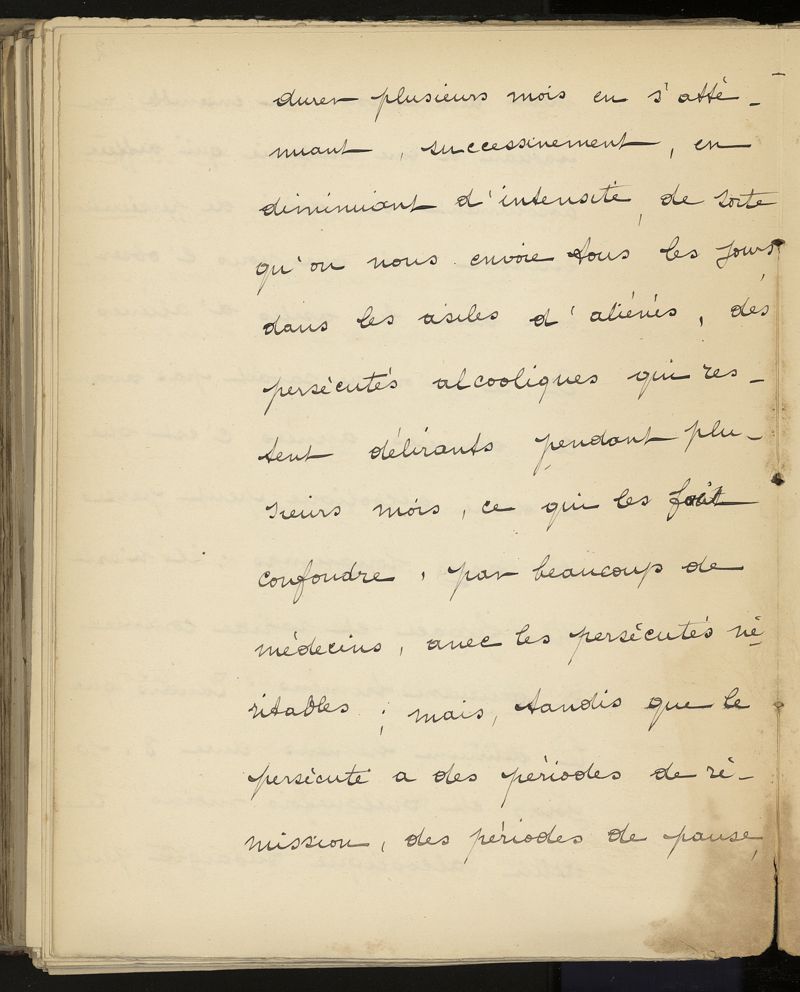 durer plusieurs mois en s'atté-
nuant, successivement, en
diminuant d'intensité, de sorte
qu'on nous envoie tous les jours
dans les asiles d'aliénés, des
persécutés alcooliques qui res-
tent délirants pendant plu-
sieurs mois, ce qui les fait
confondre, par beaucoup de
médecins, avec les persécutés vé-
ritables ; mais, tandis que le
persécuté a des périodes de ré-
mission, des périodes de pause,